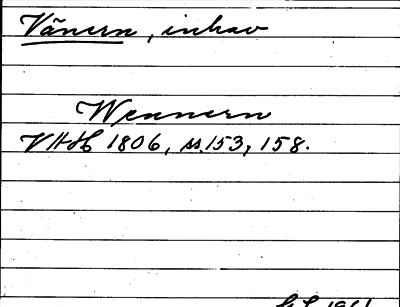 Vänern, inhav
Wennern
VHH 1806, ss.153, 158.